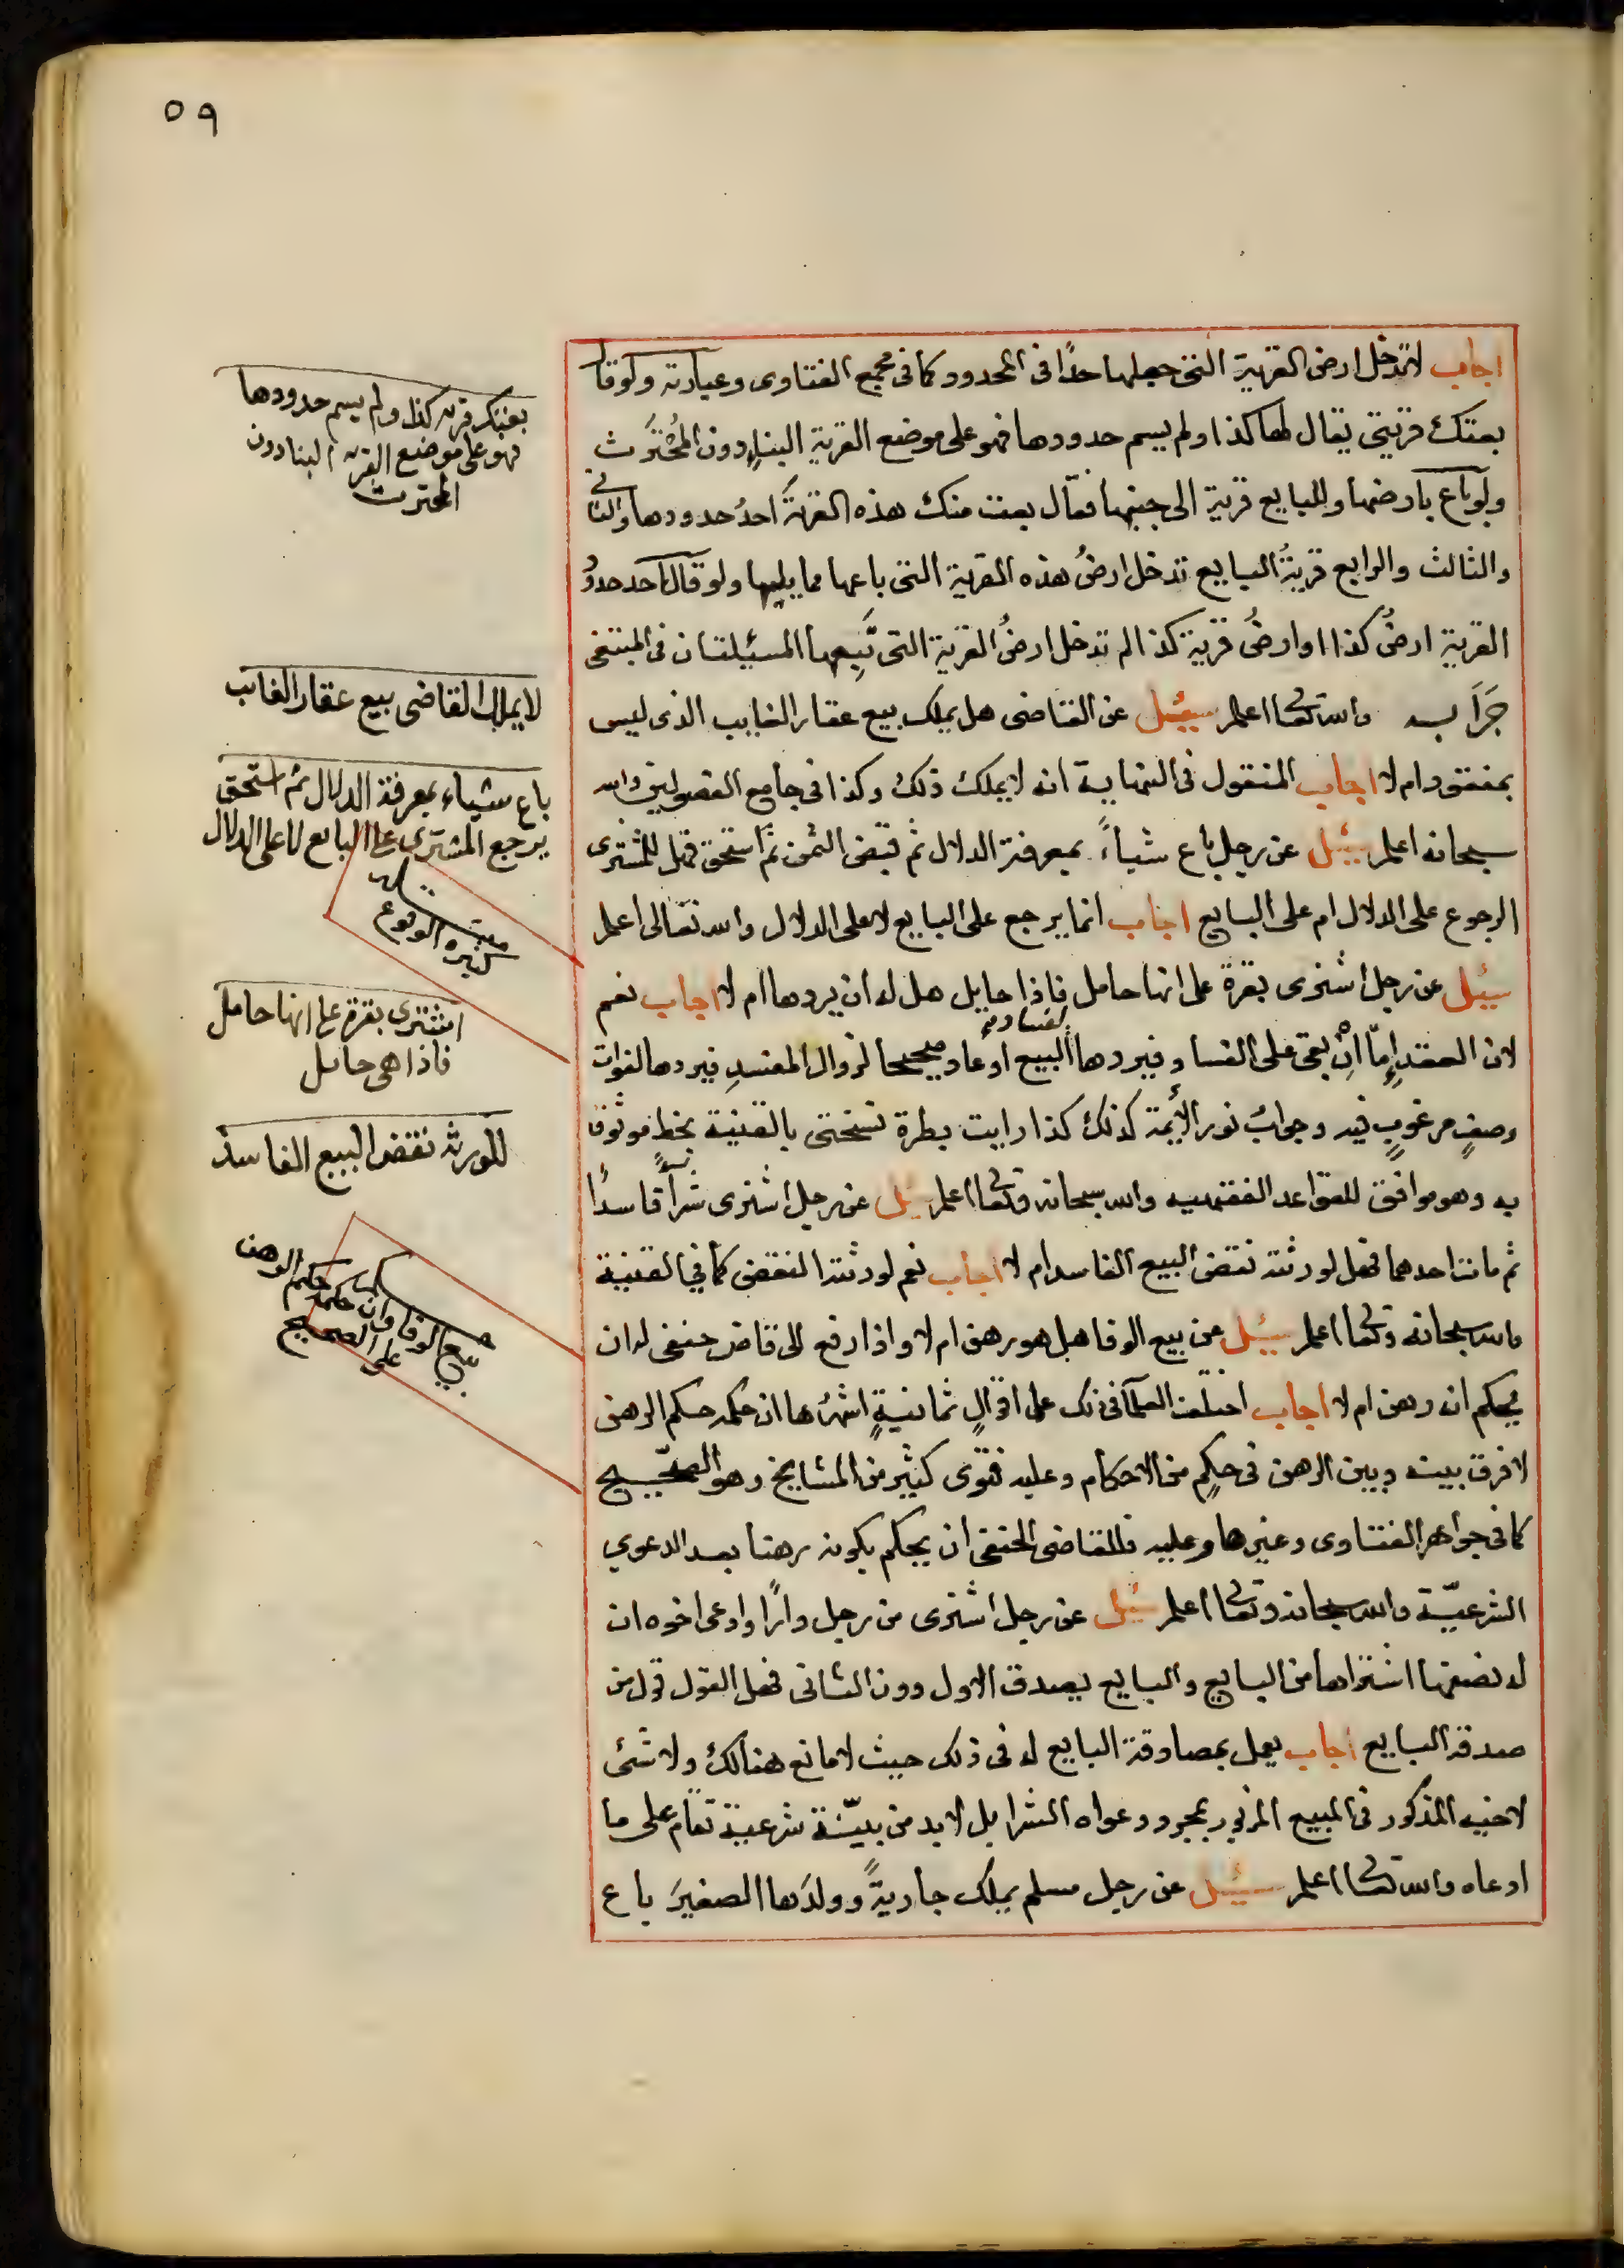 ٥٩
اجاب لا تدخل ارض القرية التى جعلها حدًا فى المحدود كما فى مجمع الفتاوى وعبارته ولو قال
بعتك قريتى يقال لها كذا ولم يسم حدودها فهو على موضع القرية البناءِ دون المُحْتَرَث
ولو باع بارضها وللبايع قرية الى جنبها فقال بعت منك هذه القريةَ احدُ حدودها والثانى
والثالث والرابع قريةُ البايع تدخل ارضُ هذه القرية التى باعها مما يليها ولو قال احد حدودُ
القرية ارضُ كذا او ارضُ قرية كذا لم تدخل ارضُ القرية التى يَبِيعها المسئيلتان فى المبتغى
والله تعالى اعلم سئيل عن القاضى هل يملك بيع عقار الغايب الذى ليس
بمفقود ام لا اجاب المنقول فى النهاية انه لا يملك ذلك وكذا فى جامع الفصولين والله
سبحانه اعلم سئيل عن رجل باع شيأً بمعرفة الدلال ثم قبض الثمن ثم استحق فهل للمشترى
الرجوع على الدلال ام على البايع اجاب انما يرجع على البايع لا على الدلال والله تعالى اعلم
سيئل عن رجل اشترى بقرة على انها حامل فاذا حايل هل له ان يردها ام لا اجاب نعم
لان العقد إمّا انْ بقى على الفساد فيردها لفساد البيع او عاد صحيحا لزوال المفسدِ فيردها لفوات
وصفٍ مرغوبٍ فيه وجوابُ نور الأئمة كذلك كذا رايت بطرة نسختى بالقنية بخط موثوق
به وهو موافق للقواعد الفقهيه والله سبحانه وتعالى اعلم سئل عن رجل اشترى شرأً فاسدًا
ثم مات احدهما فهل لورثته نقض البيع الفاسد ام لا اجاب نعم لورثته النقض كما فى القنية
والله سبحانه وتعالى اعلم سيئل عن بيع الوفا هل هو رهن ام لا واذا رفع الى قاض حنفى له ان
يحكم انه رهن ام لا اجاب اختلفت العلمآ فى ذلك على اقوالٍ ثمانيةٍ اشهرُها ان حكمه حكم الرهن
لا فرق بينه وبين الرهن فى حكمٍ من الاحكام وعليه فتوى كثير من المشايخ وهو الصحيح
كما فى جواهر الفتاوى وغيرها وعليه فللقاضى الحنفى ان يحكم بكونه رهنا بعد الدعوى
الشرعيّة والله سبحانه وتعالى اعلم سئل عن رجل اشترى من رجل دارًا وادعى اخوه ان
له نصفها اشتراها من البايع والبايع يصدق الاول دون الثانى فهل القول قول من
صدقه البايع اجاب يعمل بمصادقة البايع له فى ذلك حيث لا مانع هنالك ولا شئ
لاخيه المذكور فى المبيع المزبور بمجرد دعواه الشرا بل لا بد من بيّنة شرعية تقام على ما
ادعاه والله تعالى اعلم سيئل عن رجل مسلم يملك جاريةً وولدَها الصغيرَ باع
بعتك قريه كذا ولم يسم حدودها
فهو على موضع القريه البنا دون
المحترث
لا يملك القاضى بيع عقار الغائب
باع شياء بمعرفة الدلال ثم استحق
يرجع المشترى على البايع لا على الدلال
كثيره الوقوع
اشترى بقرة على انها حامل
فاذا هى حايل
للورثه نقض البيع الفاسد
بيع الوفا وان حكمه حكم الرهن
على الصحيح